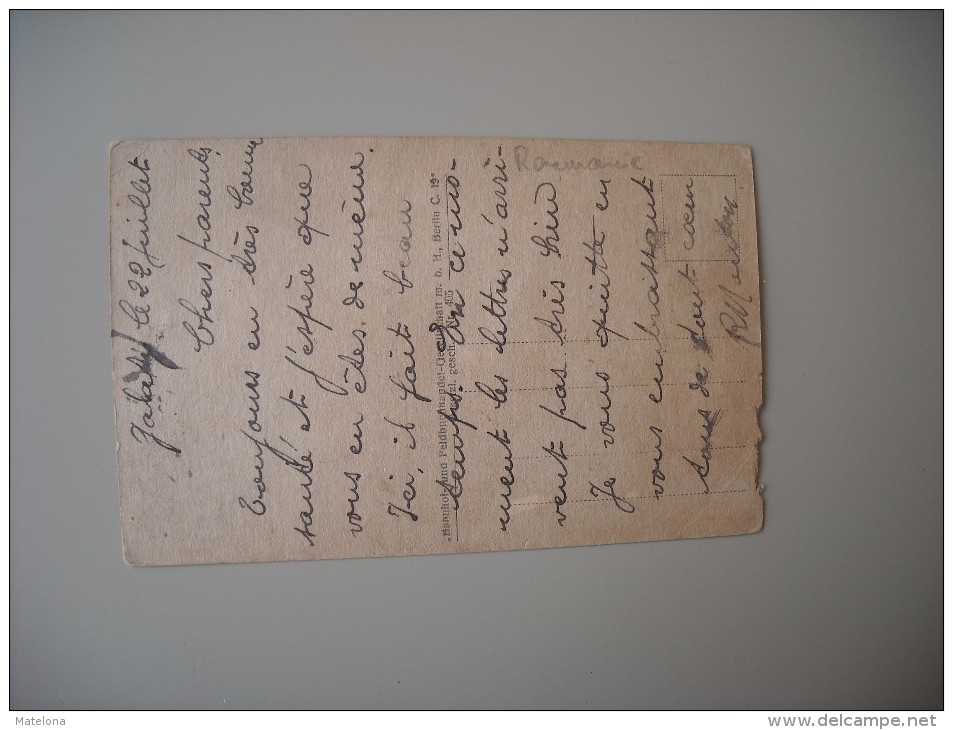 le 22 juillet
Chers parents
Toujours en très bonne
santé et j'espère que
vous en êtes de même.
Ici, il fait beau
temps. En ce mo-
ment les lettres n'arri-
vent pas très bien
Je vous quitte en
vous embrassant
tous de tout cœur
Roumanie
"Bahnhof- und Feldbuchhandel-Gesellschaft m. b. H., Berlin C. 19"
gesetzl. gesch. Nr. 405
Matelona
www.delcampe.net